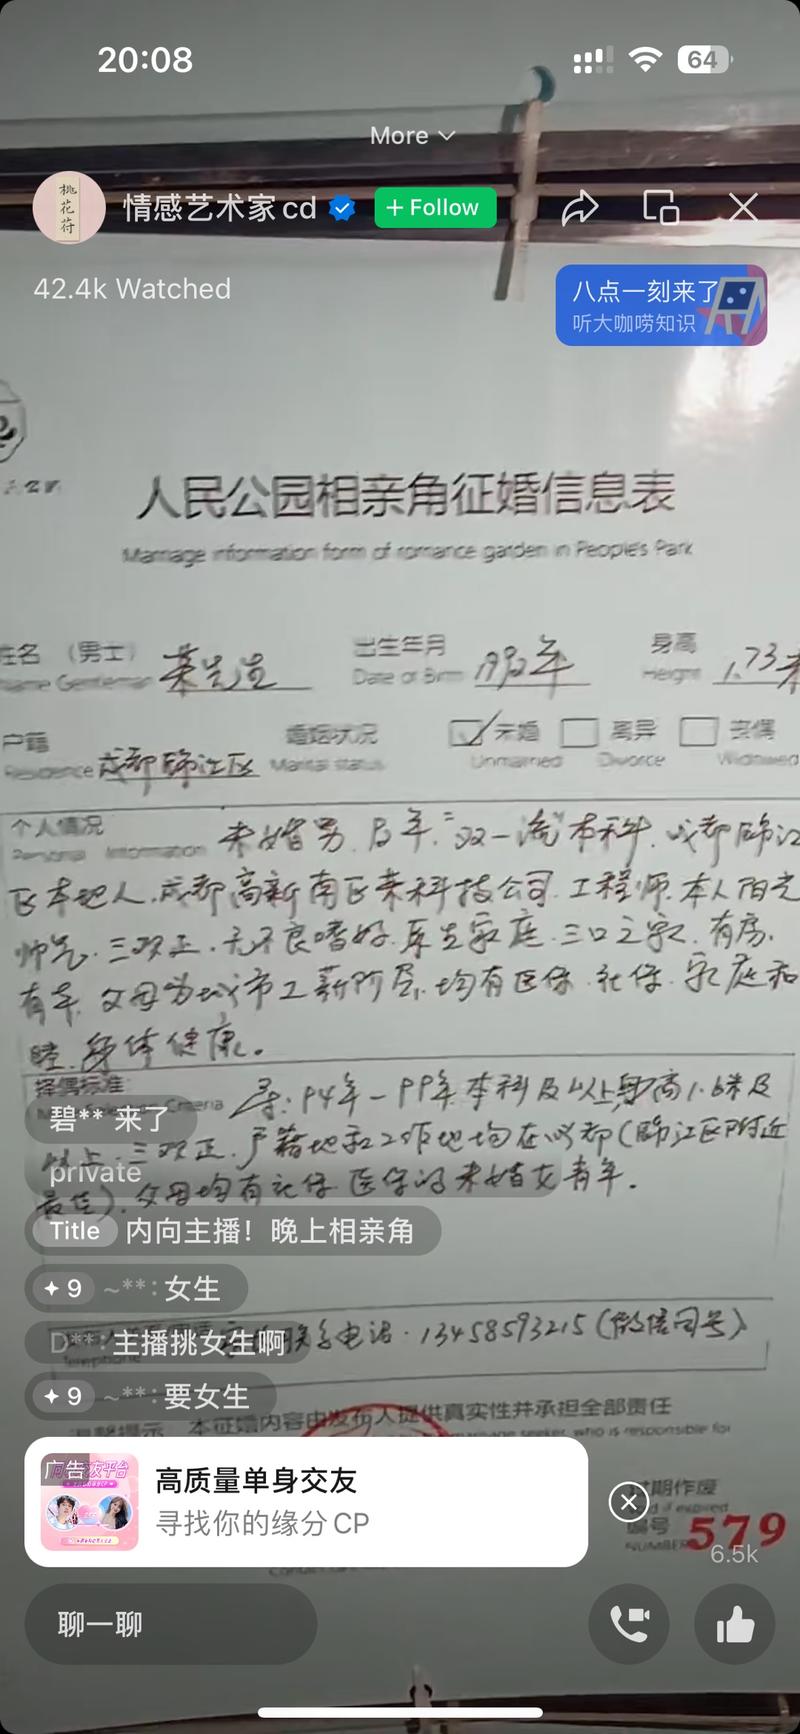 20:08
64
More
桃花符
情感艺术家cd
+ Follow
42.4k Watched
八点一刻来了
听大咖唠知识
人民公园相亲角征婚信息表
Marriage information form of romance garden in People's Park
姓名 （男士） 出生年月 1992年 身高 1.73米
Name Gentleman Date of Birth Height
户籍 成都锦江区 婚姻状况 未婚 离异 丧偶
Residence Marital status Unmarried Divorce Widowed
个人情况 未婚男. 92年. "双一流"本科. 成都锦江
Personal Information
区本地人. 成都高新南区某科技公司. 工程师. 本人阳光
帅气. 三观正. 无不良嗜好. 原生家庭. 三口之家. 有房.
有车. 父母为城市工薪阶层. 均有医保. 社保. 家庭和
睦. 身体健康.
择偶标准: 寻: 94年—99年本科及以上身高1.6米及
Criteria
以上. 三观正. 户籍地和工作地均在成都(锦江区附近
最佳). 父母均有社保 医保的未婚女青年.
碧** 来了
private
Title 内向主播！晚上相亲角
9 ~**: 女生
D**: 主播挑女生啊
联系电话: 13458593215 (微信同号)
Telephone
9 ~**: 要女生
温馨提示 本征婚内容由发布人提供真实性并承担全部责任
marriage seeker, who is responsible for
广告
高质量单身交友
寻找你的缘分CP
过期作废
if expired
编号 579
NUMBER
6.5k
聊一聊